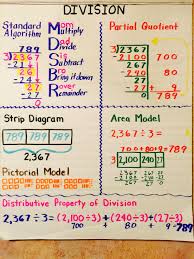 DIVISION
Standard
Algorithm
789
3 2367
-21
26
-24
27
-27
Mom
Multiply
Dad
Divide
Sis
Subtract
Bro
Bring it down
Rover
Remainder
Partial Quotient
3 2367
-2100 700
267
-240 80
27
-27 + 9
789
Strip Diagram
789 789 789
2,367
Pictorial Model
Area Model
2,367 ÷ 3 =
3 2,100 240 27
Distributive Property of Division
2,367÷3=(2,100÷3)+(240÷3)+(27÷3)
700 + 80 + 9 = 789